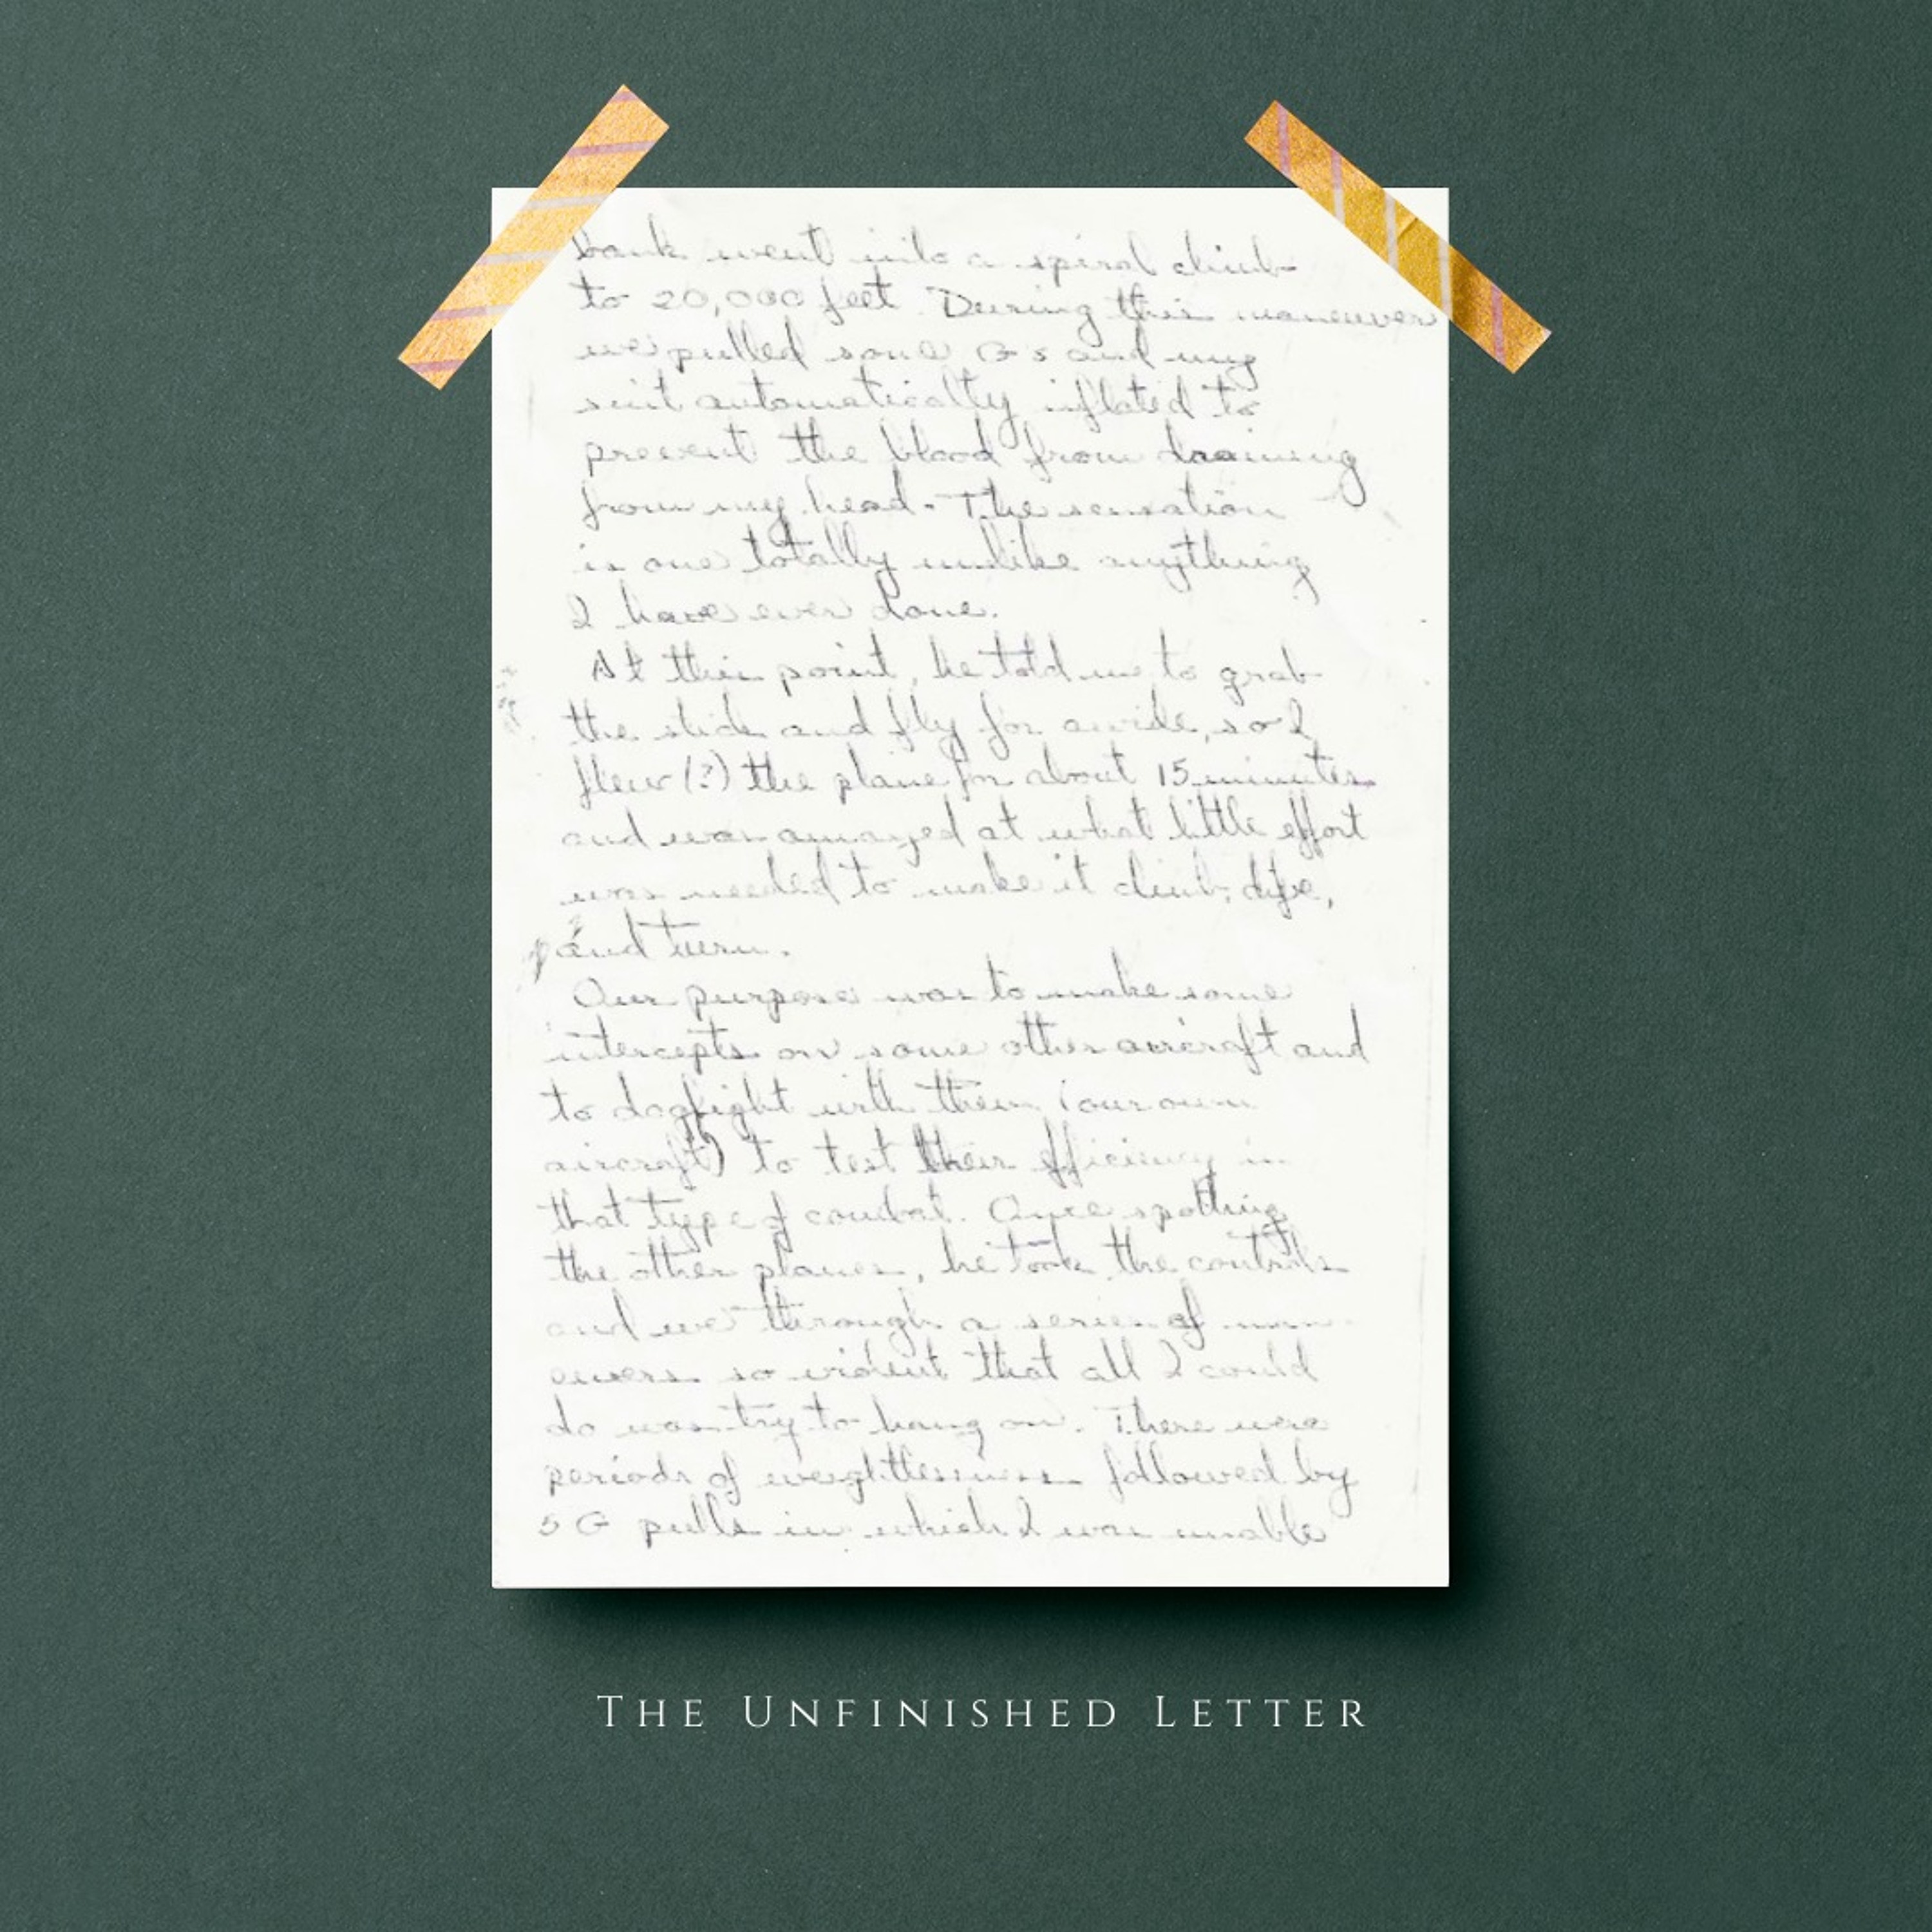 bank went into a spiral climb
to 20,000 feet. During this maneuver
we pulled some G's and my
suit automatically inflated to
prevent the blood from draining
from my head. The sensation
is one totally unlike anything
I have ever done.
At this point, he told me to grab
the stick and fly for awhile, so I
flew (?) the plane for about 15 minutes
and was amazed at what little effort
was needed to make it climb, dive,
and turn.
Our purpose was to make some
intercepts on some other aircraft and
to dogfight with them (our own
aircraft) to test their efficiency in
that type of combat. Once spotting
the other planes, he took the controls
and we through a series of man-
euvers so violent that all I could
do was try to hang on. There were
periods of weightlessness followed by
5 G pulls in which I was unable
THE UNFINISHED LETTER